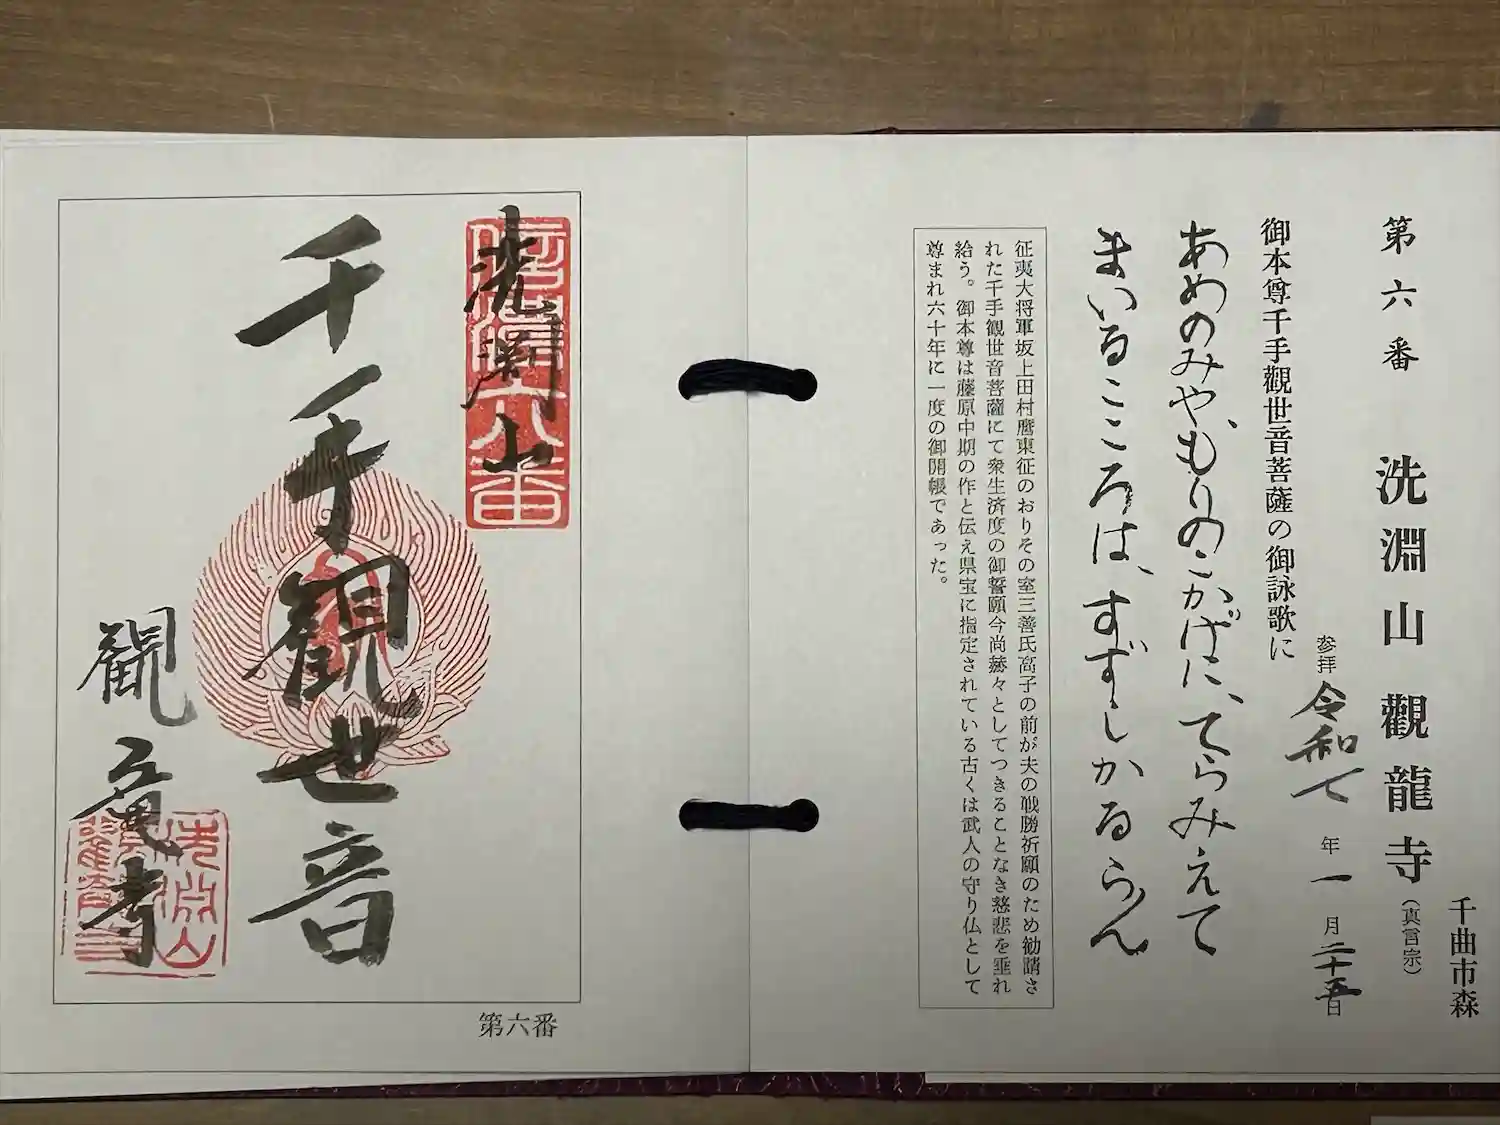 千曲市森
第六番 洗淵山 觀龍寺(真言宗)
参拝 令和七年一月二十五日
御本尊千手觀世音菩薩の御詠歌に
あめのみや、もりのこかげに、てらみえて
まいるこころは、すずしかるらん
征夷大将軍坂上田村麿東征のおりその室三善氏高子の前が夫の戦勝祈願のため勧請さ
れた千手観世音菩薩にて衆生済度の御誓願今尚赫々としてつきることなき慈悲を垂れ
給う。御本尊は藤原中期の作と伝え県宝に指定されている古くは武人の守り仏として
尊まれ六十年に一度の御開帳であった。
信濃六番
洗淵山
千手観世音
觀竜寺
洗淵山
第六番